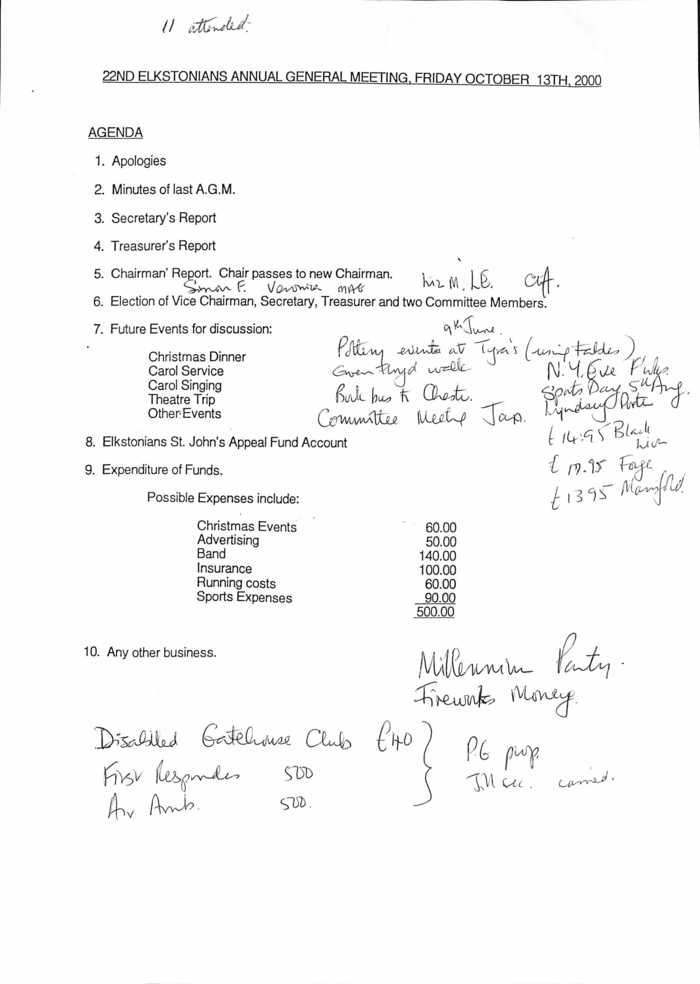 11 attended.
22ND ELKSTONIANS ANNUAL GENERAL MEETING, FRIDAY OCTOBER 13TH, 2000
AGENDA
1. Apologies
2. Minutes of last A.G.M.
3. Secretary's Report
4. Treasurer's Report
5. Chairman' Report. Chair passes to new Chairman.
Simon F. Veronica MAG Liz M. LE. Cliff.
6. Election of Vice Chairman, Secretary, Treasurer and two Committee Members.
7. Future Events for discussion:
9th June.
Pottery events at Tyra's (using tables)
Christmas Dinner
Carol Service
Carol Singing
Theatre Trip
Other Events
walk
bus to Cheste.
Committee Meetg Jan.
N.Y. Eve
Sports Day 5th Aug.
Lyndsay
£14.95 Black Lion
8. Elkstonians St. John's Appeal Fund Account
9. Expenditure of Funds.
£13 95 Manifold.
Possible Expenses include:
Christmas Events 60.00
Advertising 50.00
Band 140.00
Insurance 100.00
Running costs 60.00
Sports Expenses 90.00
500.00
10. Any other business.
Millennium Party.
Fireworks Money.
Disabled Gatehouse Club £40
First Responders 500
Air Amb. 500.
P.G prop.
J.M sec. carried.